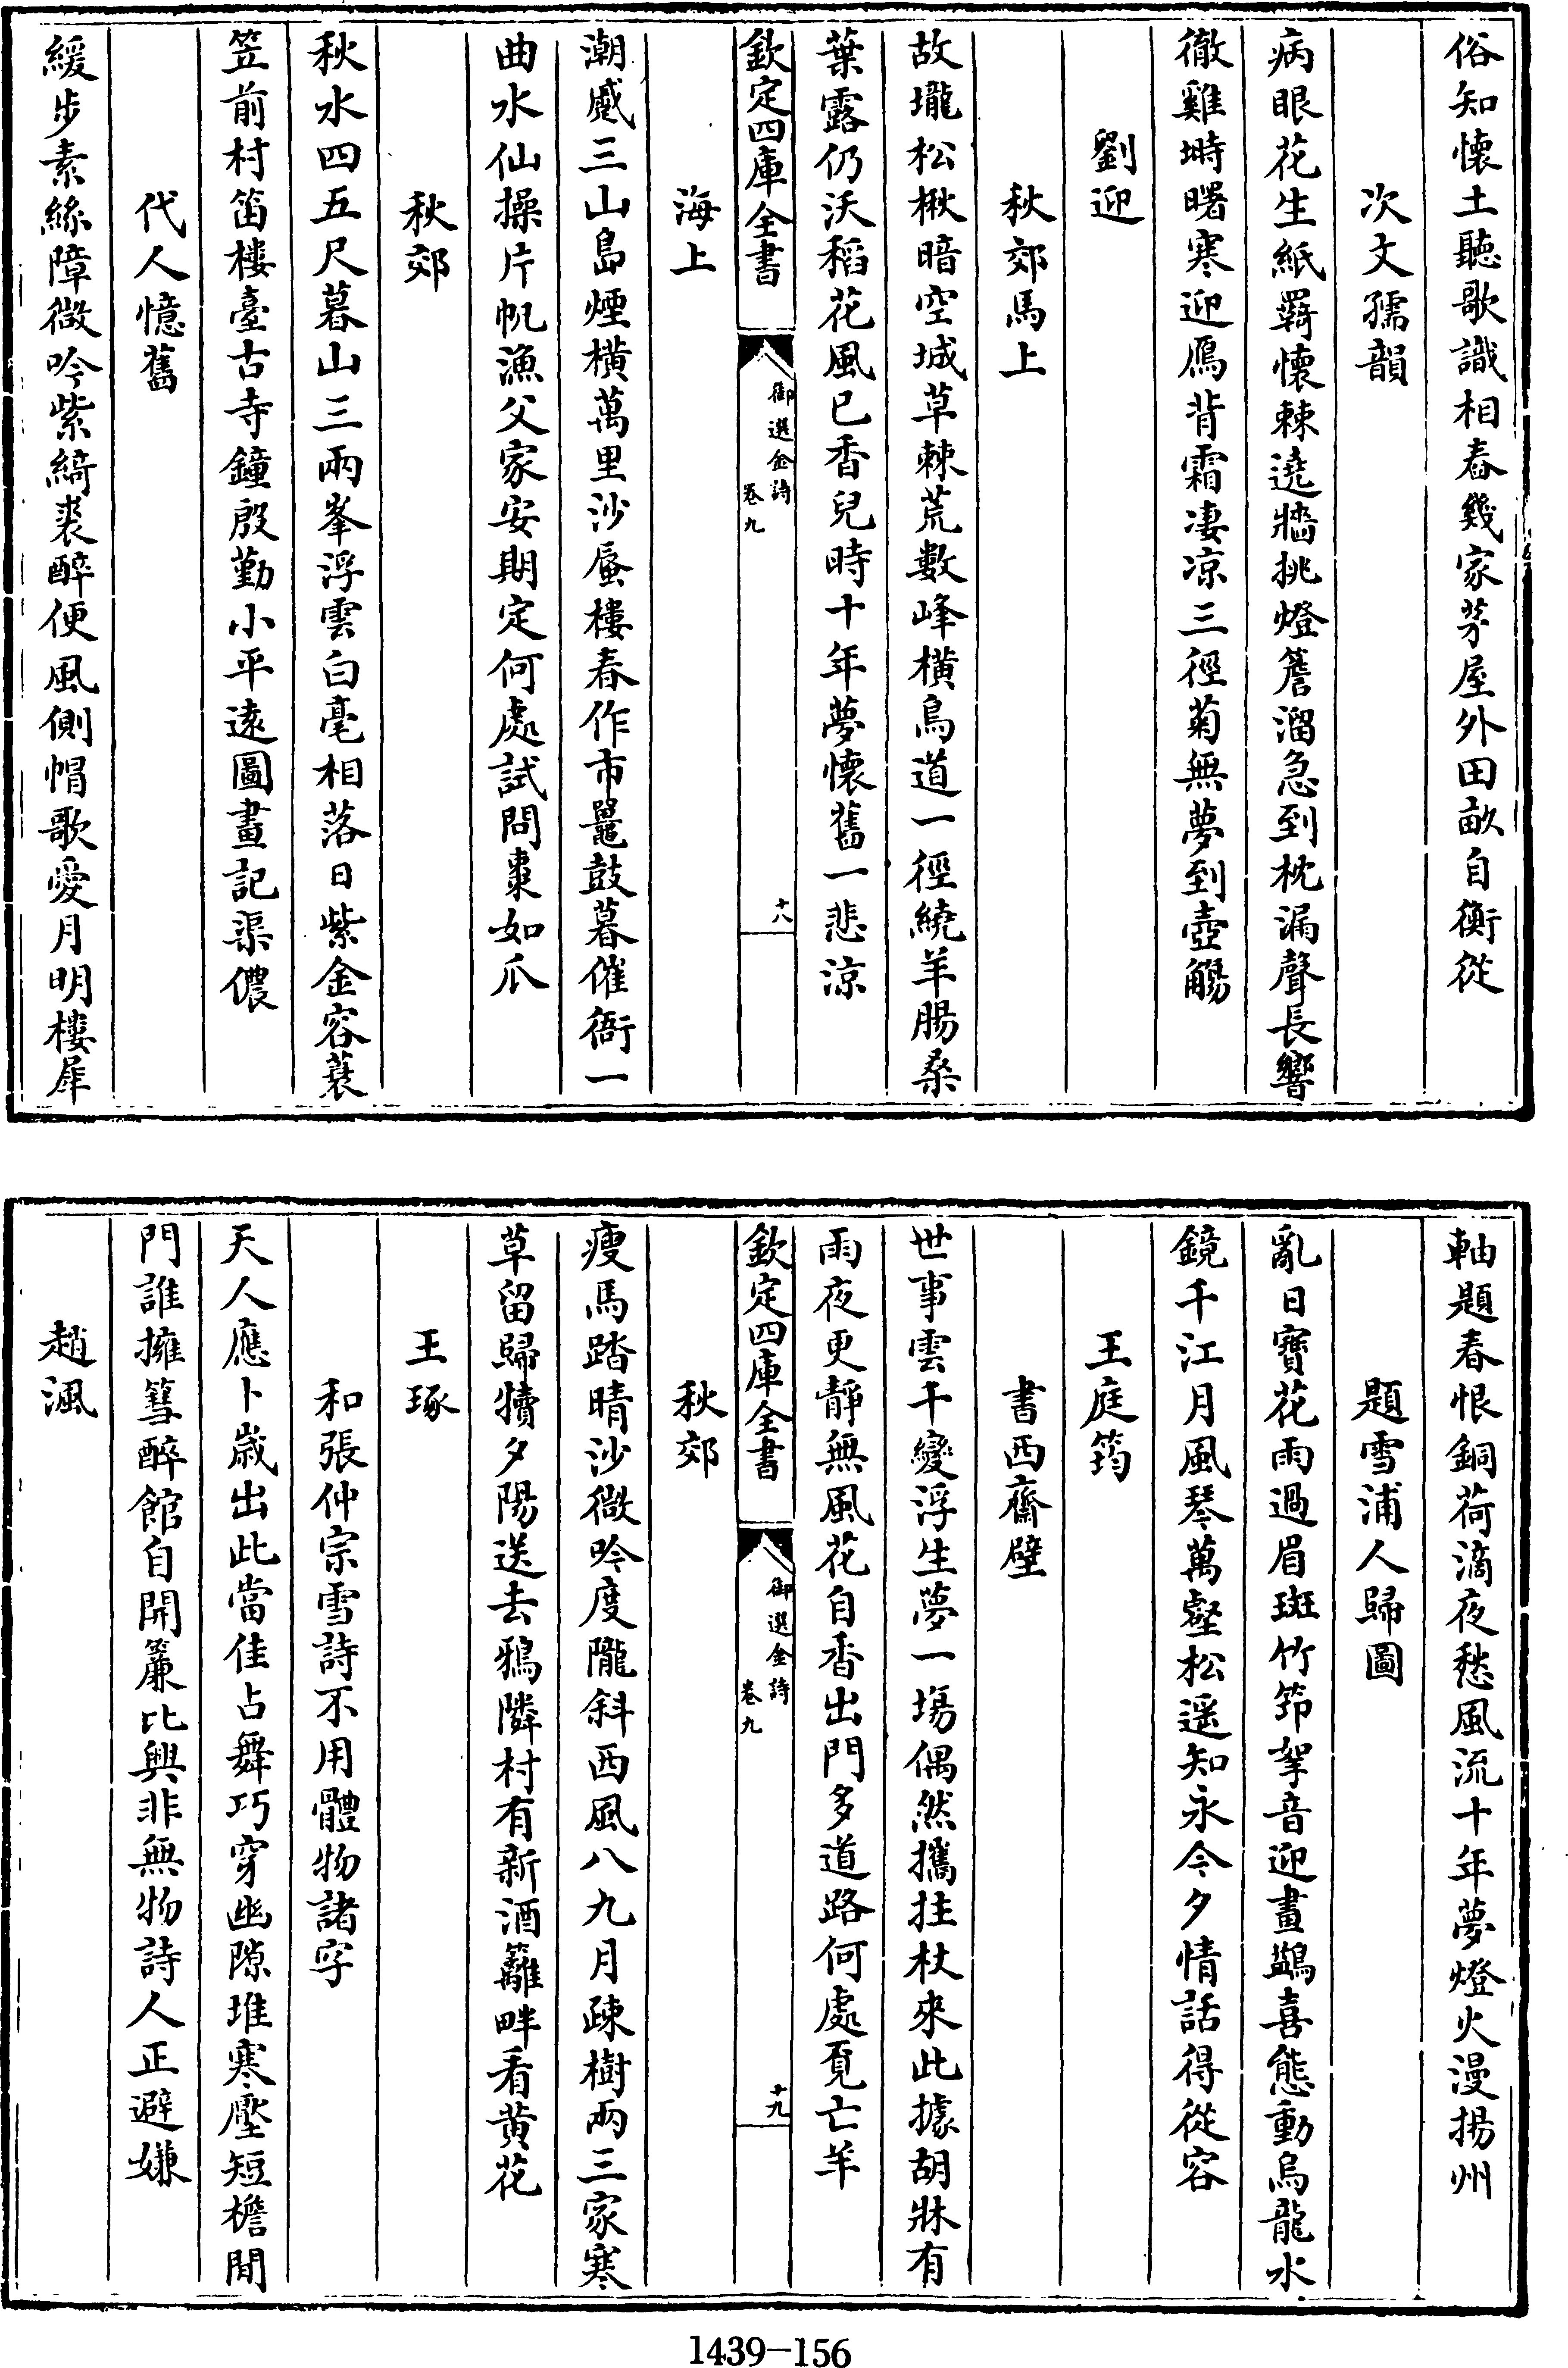 俗知懷土聽歌識相舂幾家茅屋外田畝自衡從
次文孺韻
病眼花生紙羇懷棘遶牆挑燈簷溜急到枕漏聲長響
徹雞塒曙寒迎鴈背霜凄凉三徑菊無夢到壺觴
劉迎
秋郊馬上
故壠松楸暗空城草棘荒數峰横鳥道一徑繞羊腸桑
葉露仍沃稻花風已香兒時十年夢懷舊一悲涼
欽定四庫全書
御選金詩
卷九
十八
海上
潮蹙三山島煙横萬里沙蜃樓春作市鼉鼓暮催衙一
曲水仙操片帆漁父家安期定何處試問棗如瓜
秋郊
秋水四五尺暮山三兩峯浮雲白毫相落日紫金容蓑
笠前村笛樓臺古寺鐘殷勤小平逺圖畫記渠儂
代人憶舊
緩步素絲障微吟紫綺裘醉便風側帽歌愛月明樓犀
軸題春恨銅荷滴夜愁風流十年夢燈火漫揚州
題雪浦人歸圖
亂日寳花雨過眉斑竹笻挐音迎畫鷁喜態動烏龍水
鏡千江月風琴萬壑松遥知永今夕情話得從容
王庭筠
書西齋壁
世事雲千變浮生夢一塲偶然攜拄杖來此據胡牀有
雨夜更靜無風花自香出門多道路何處覓亡羊
欽定四庫全書
御選金詩
卷九
十九
秋郊
瘦馬踏晴沙微吟度隴斜西風八九月疎樹兩三家寒
草留歸犢夕陽送去鴉隣村有新酒籬畔看黄花
王琢
和張仲宗雪詩不用體物諸字
天人應卜歲出此當佳占舞巧穿幽隙堆寒壓短檐閒
門誰擁篲醉館自開簾比興非無物詩人正避嫌
趙渢
1439-156